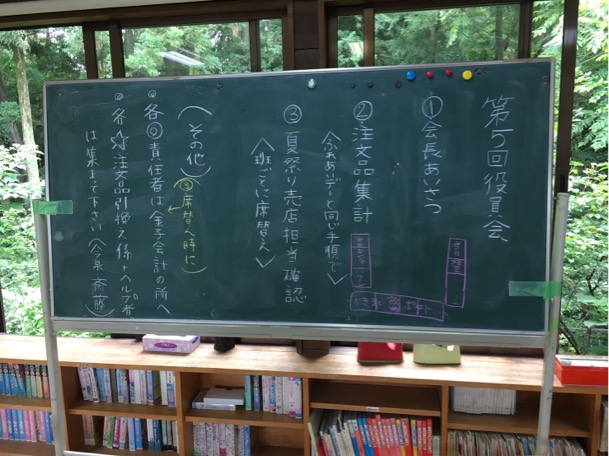 第5回役員会
①会長あいさつ
②注文品集計
〈ふれあいデーと同じ手順で〉
③夏祭り売店担当確認
〈班ごとに席替え〉
(その他)
(③席替え時に)
◎各◎責任者は金子会計の所へ
◎各☆注文品引換え係+ヘルプ者
は集まって下さい(今泉、斉藤)